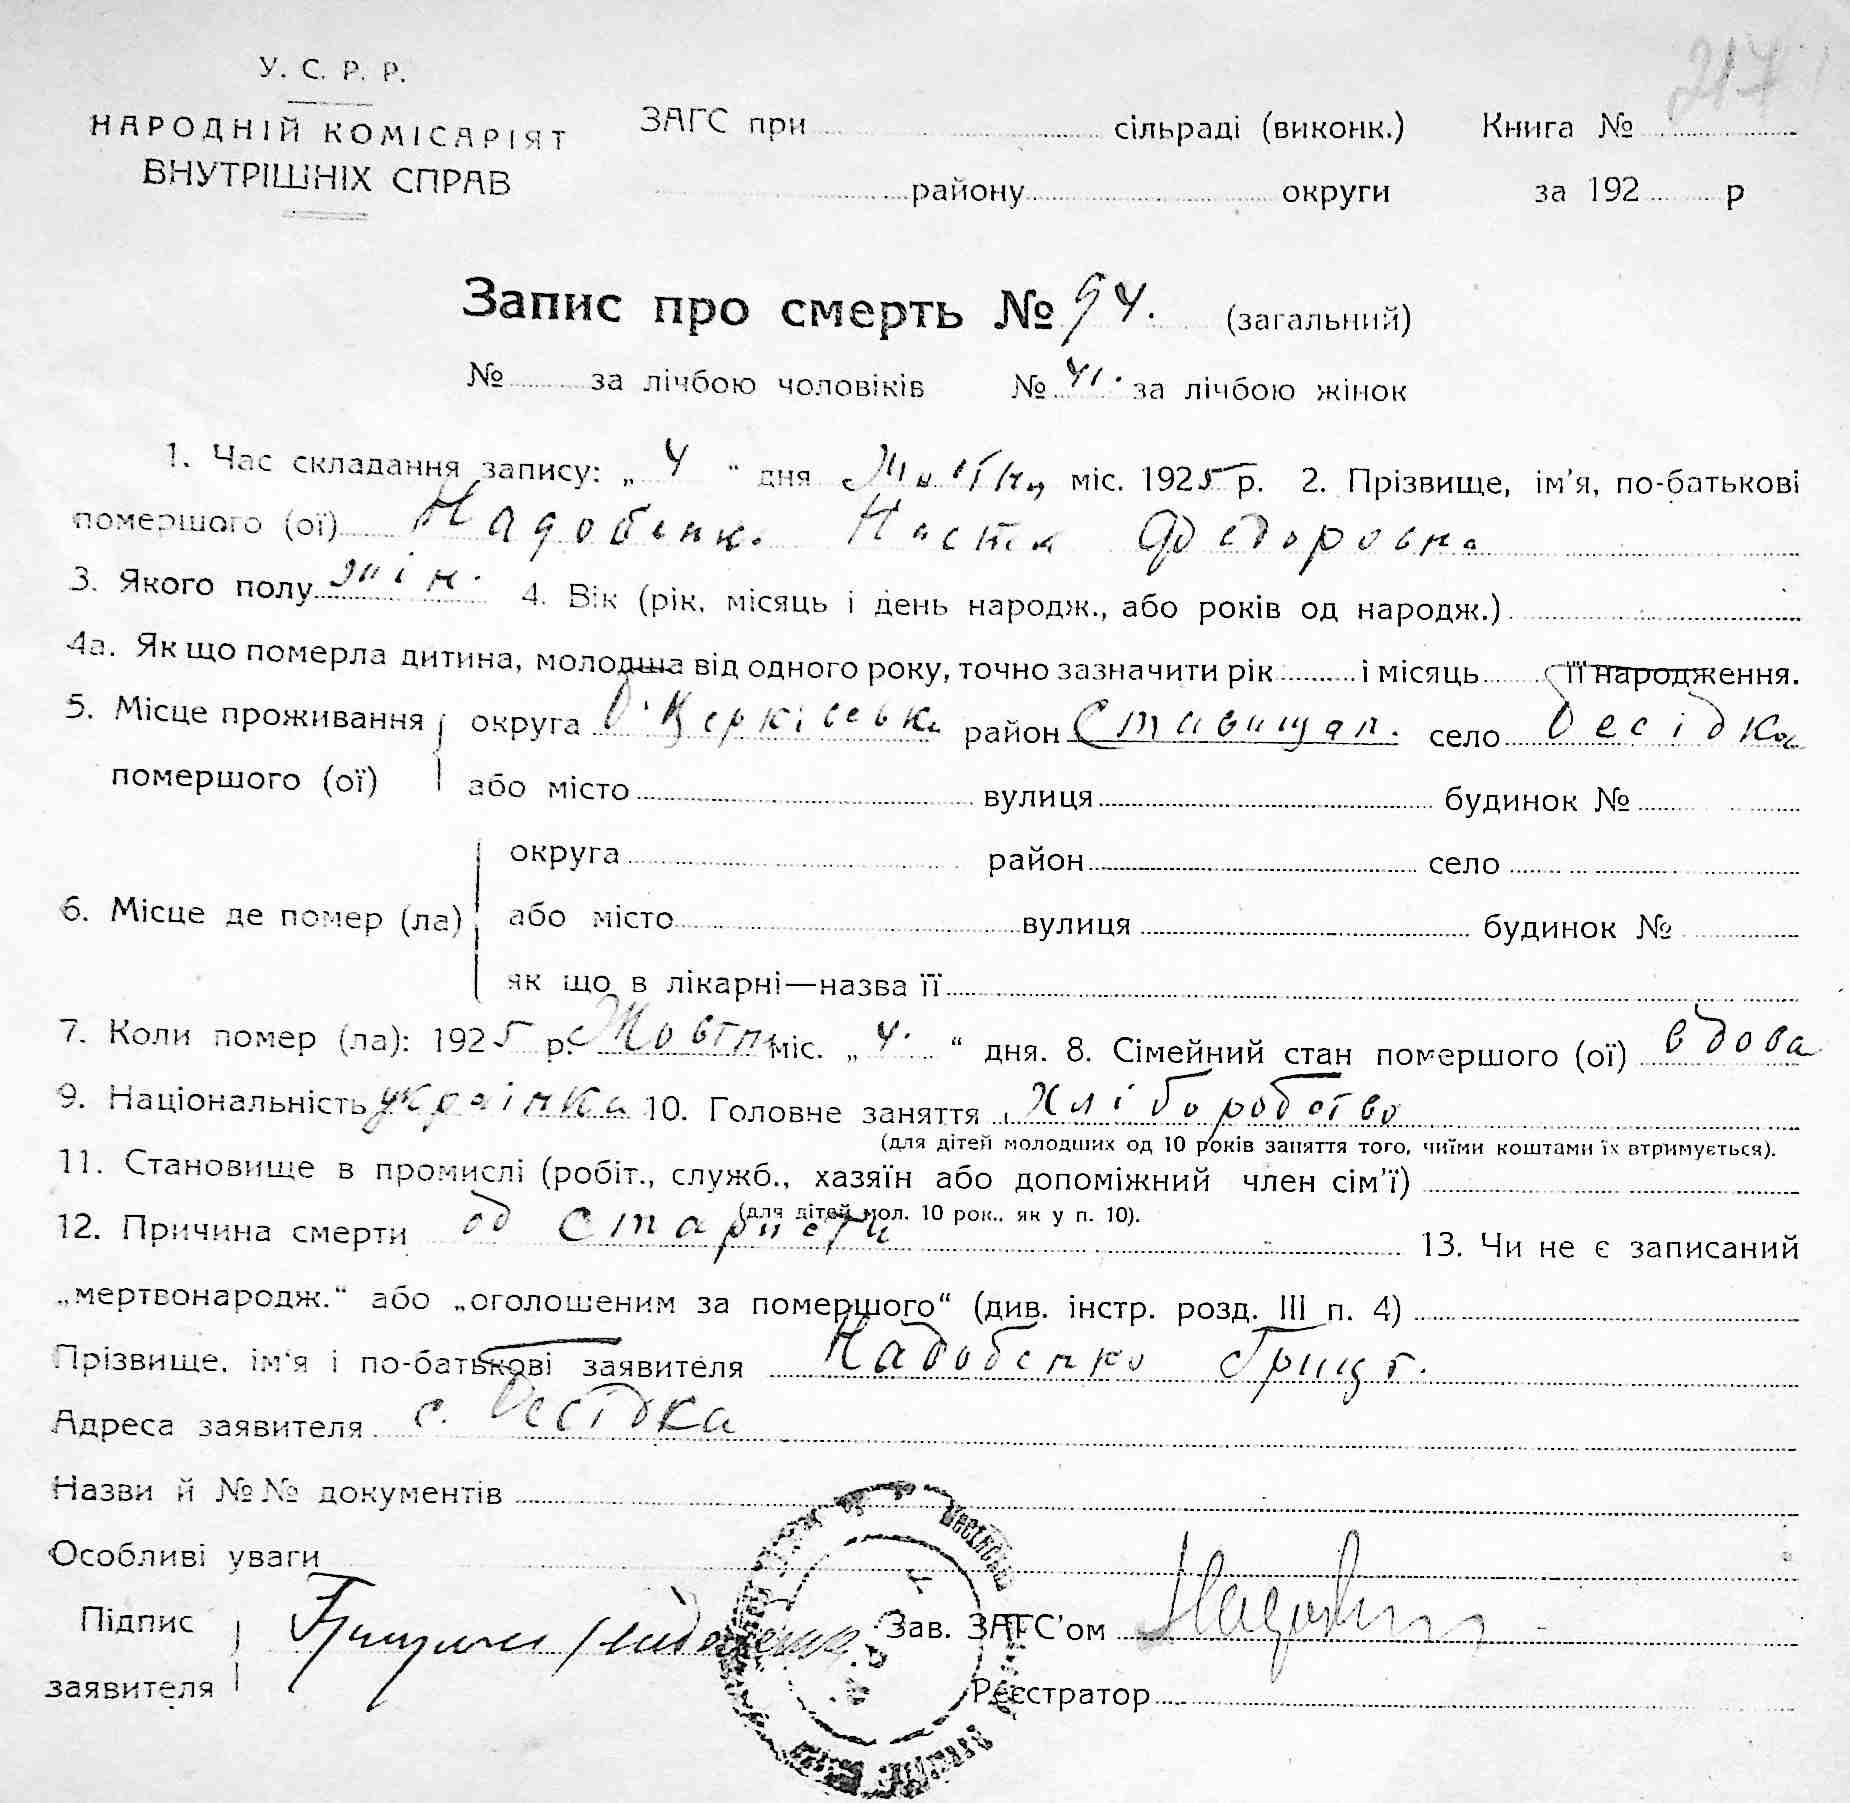 217
У. С. Р. Р.
НАРОДНІЙ КОМІСАРІЯТ
ВНУТРІШНІХ СПРАВ
ЗАГС при сільраді (виконк.) Книга №
району округи за 192 р
Запис про смерть № 94. (загальний)
№ за лічбою чоловіків № 41. за лічбою жінок
1. Час складання запису: „ 4 “ дня міс. 1925 р. 2. Прізвище, ім'я, по-батькові
помершого (ої) Надобенко Настя Федоровна
3. Якого полу жін. 4. Вік (рік, місяць і день народж., або років од народж.)
4а. Як що померла дитина, молодша від одного року, точно зазначити рік і місяць її народження.
5. Місце проживання округа Б-Церківська район Ставищан. село Бесідка
помершого (ої) або місто вулиця будинок №
округа район село
6. Місце де помер (ла) або місто вулиця будинок №
як що в лікарні—назва її
7. Коли помер (ла): 1925 р. Жовтн міс. „ 4. “ дня. 8. Сімейний стан помершого (ої) вдова
9. Національність українка 10. Головне заняття Хліборобство
(для дітей молодших од 10 років заняття того, чиїми коштами їх втримується).
11. Становище в промислі (робіт., служб., хазяїн або допоміжний член сім'ї)
(для дітей мол. 10 рок., як у п. 10).
12. Причина смерти од старости 13. Чи не є записаний
„мертвонародж.“ або „оголошеним за помершого“ (див. інстр. розд. III п. 4)
Прізвище, ім'я і по-батькові заявителя Надобенко Гриць.
Адреса заявителя с. Бесідка
Назви й №№ документів
Особливі уваги
Підпис Зав. ЗАГС'ом
заявителя Реєстратор